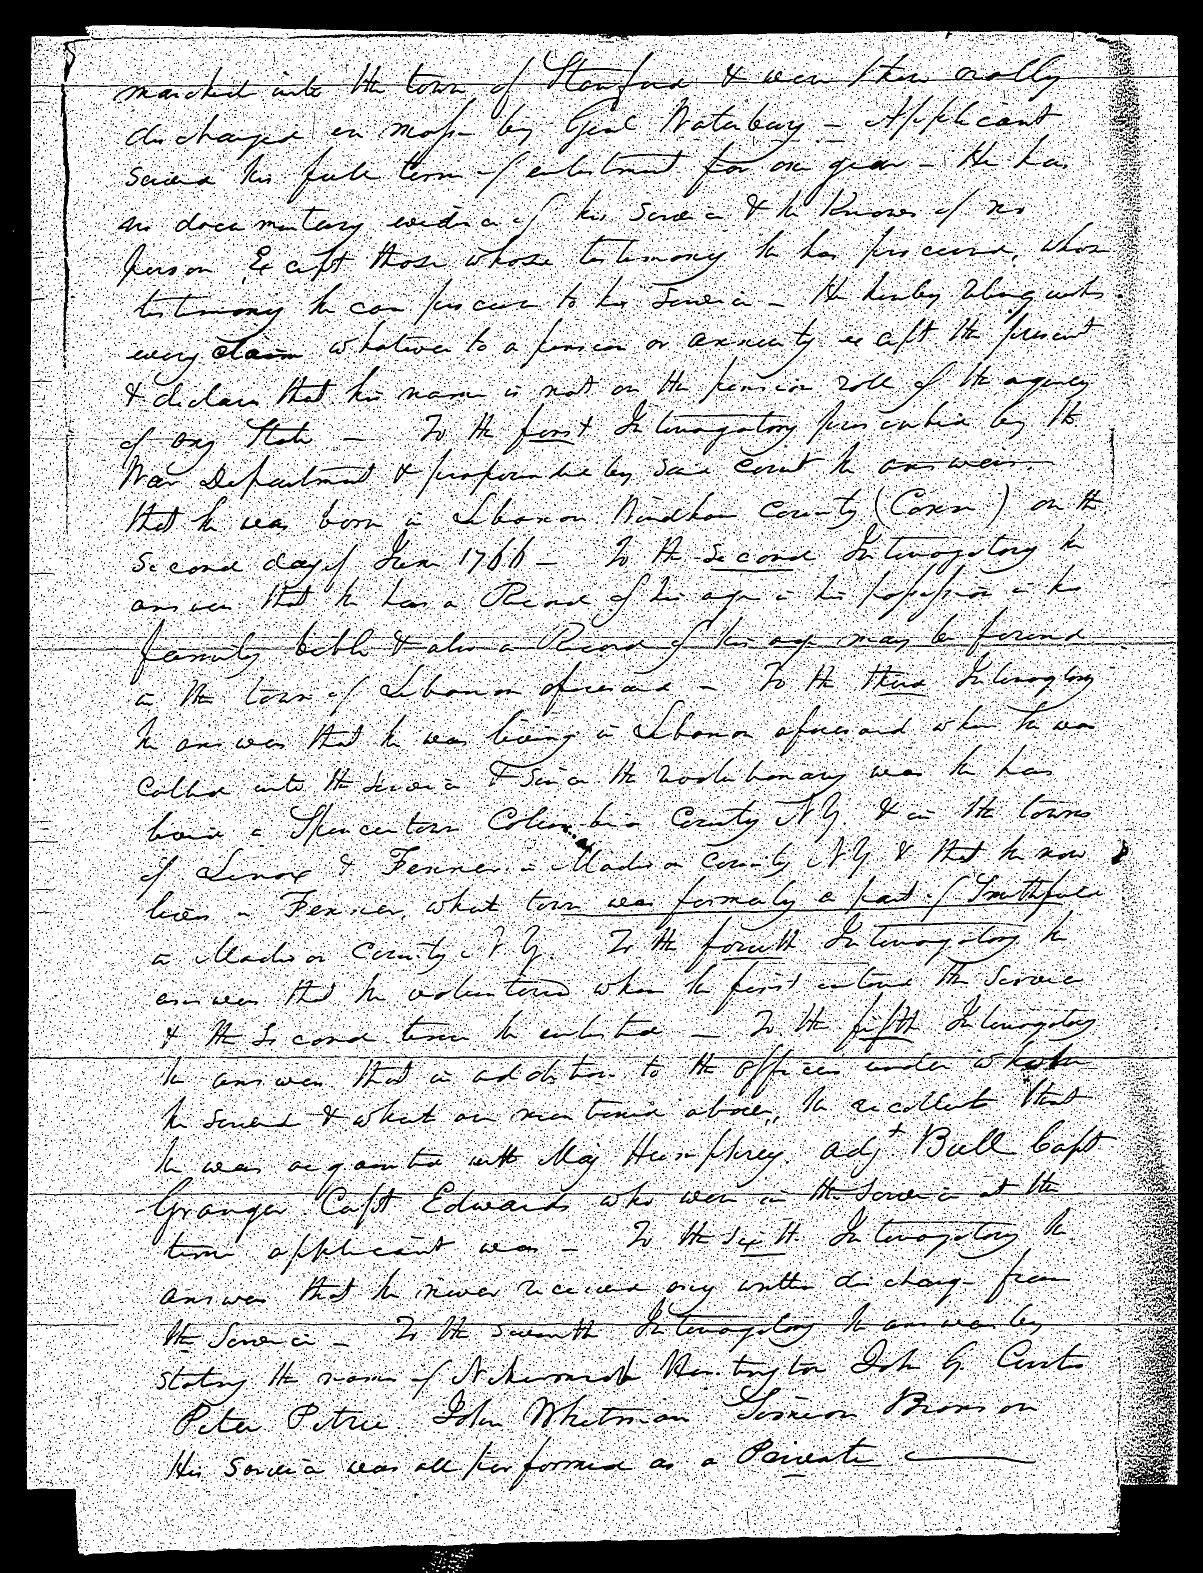 marched into the town of Stanford & were then orally
discharged en mass by Genl Waterbury – Applicant
served his full term of enlistment for one year – He has
no documentary evidence of his service & he knows of no
person Except those whose testimony he has procured, whose
testimony he can procure to his service – He hereby relinquishes
every claim whatever to a pension or annuity except the present
& declares that his name is not on the pension roll of the agency
of any State – To the first Interrogatory prescribed by the
War Department & propounded by said court he answers
that he was born in Lebanon Windham County (Conn) on the
second day of June 1766 – To the second Interrogatory he
answers that he has a Record of his age in his possession in his
family bible & also a Record of his age may be found
in the town of Lebanon aforesaid – To the third Interrogatory
he answers that he was living in Lebanon aforesaid when he was
called into the service & since the revolutionary war he has
lived in Spencertown Columbia County N.Y. & in the towns
of Lenox & Fenner in Madison County N Y & that he now
lives in Fenner, what town was formerly a part of Smithfield
in Madison County N.Y. To the fourth Interrogatory he
answers that he volunteered when he first entered the service
& the second time he enlisted – To the fifth Interrogatory
he answers that in addition to the officers under whom
he served & what are mentioned above, he recollects that
he was acquainted with Maj Humphrey. adjt Bull Capt
Granger Capt Edwards who were in the service at the
time applicant was – To the sixth Interrogatory he
answers that he never received any written discharge from
the Service – To the seventh Interrogatory he answers by
stating the names of Nehemiah Huntington John G. Curtis
Peter Petrie John Whitman Simeon Bronson
His service was all performed as a Private